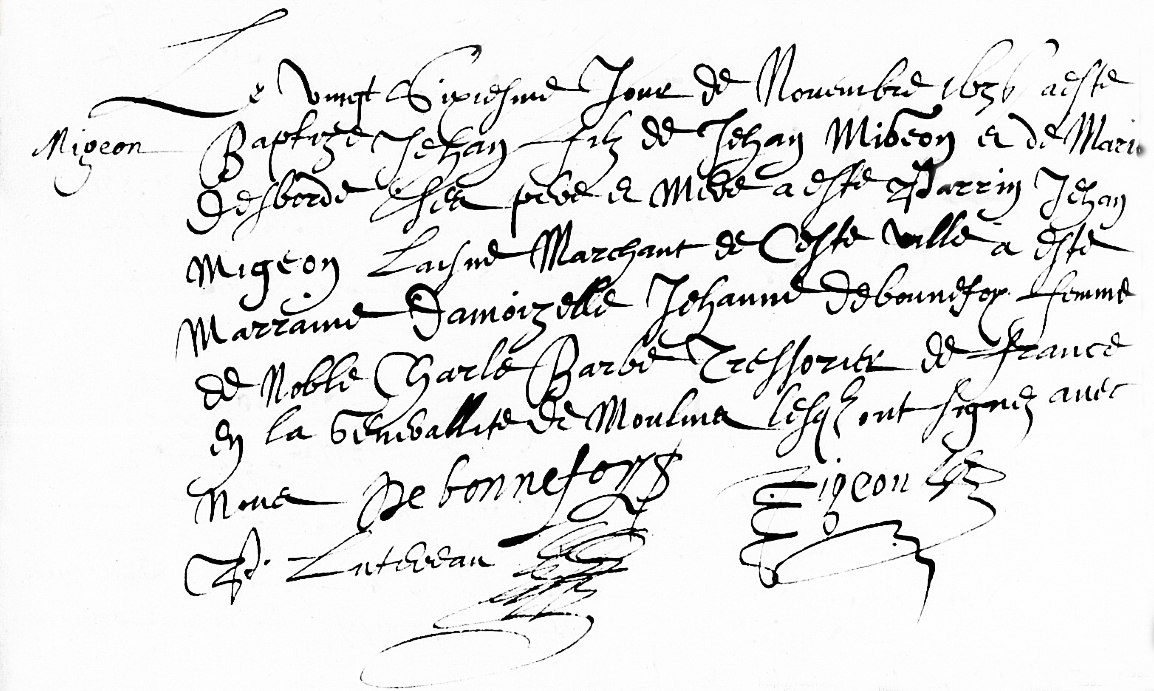 Le vingt Sixiesme Jour de Novembre 1636 a este
Migeon
Baptize Jehan filz de Jehan Migeon et de Marie
Desborde ses pere et Mere a este Parrin Jehan
Migeon Laisne Marchant de Ceste ville a este
Marraine Damoizelle Jehanne debonnefoy femme
de Noble Charle Barbe Tressorier de france
en la Generallite de Moulins lesqlz ont signez avec
Nous Debonnefoy Migeon
P. Lutereau